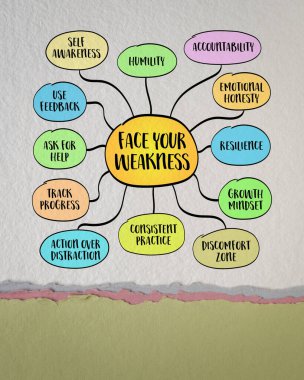 SELF
AWARENESS
HUMILITY
ACCOUNTABILITY
USE
FEEDBACK
EMOTIONAL
HONESTY
ASK FOR
HELP
FACE YOUR
WEAKNESS
RESILIENCE
TRACK
PROGRESS
GROWTH
MINDSET
ACTION OVER
DISTRACTION
CONSISTENT
PRACTICE
DISCOMFORT
ZONE